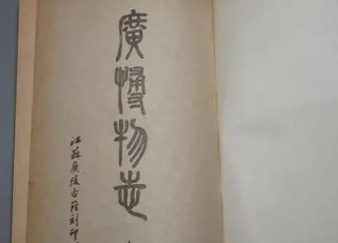 廣博物志
江蘇廣陵古籍刻印